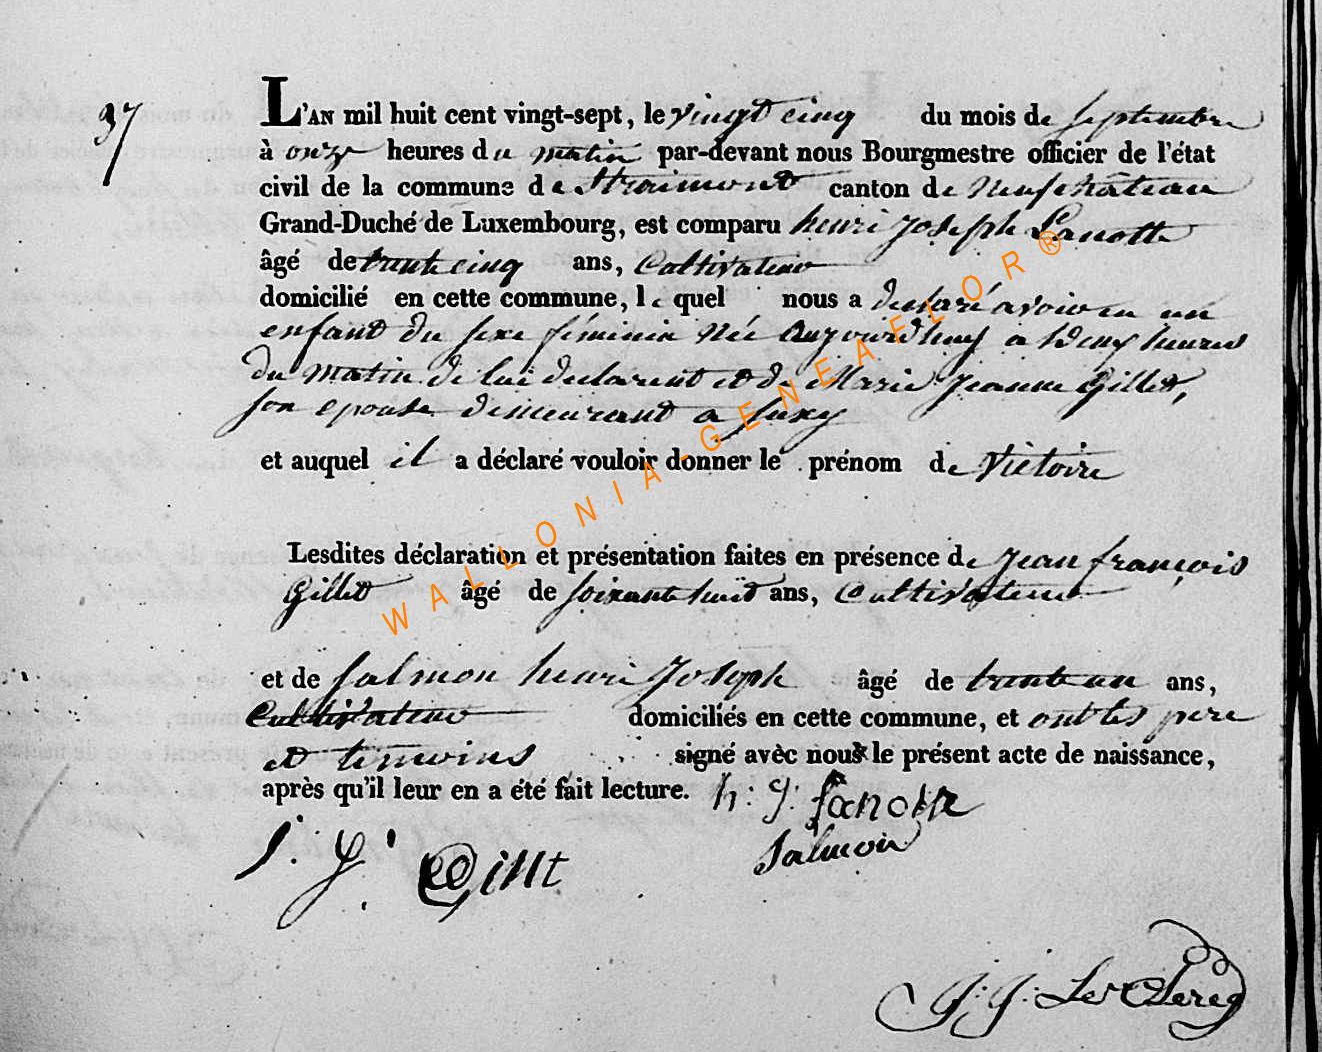 37
L'AN mil huit cent vingt-sept, le vingt cinq du mois de Septembre
à onze heures du matin par-devant nous Bourgmestre officier de l'état
civil de la commune de Straimont canton de Neufchâteau
Grand-Duché de Luxembourg, est comparu henri Joseph Lanotte
âgé de trente cinq ans, Cultivateur
domicilié en cette commune, lequel nous a declaré avoir eu un
enfant du sexe féminin née aujourd'huy a deux heures
du matin de lui declarent et de Marie Jeanne Gillet,
son epouse demeurant a Suxy
et auquel il a déclaré vouloir donner le prénom de Victoire
Lesdites déclaration et présentation faites en présence de Jean françois
Gillet âgé de soixante huit ans, Cultivateur
et de Salmon henri Joseph âgé de trente un ans,
Cultivateur domiciliés en cette commune, et ont les pere
et temoins signé avèc nous le présent acte de naissance,
après qu'il leur en a été fait lecture. h: J: Lanotte
Salmon
J: f: Gillet
J: J: Le Clereq
WALLONIA-GENEAELOR®